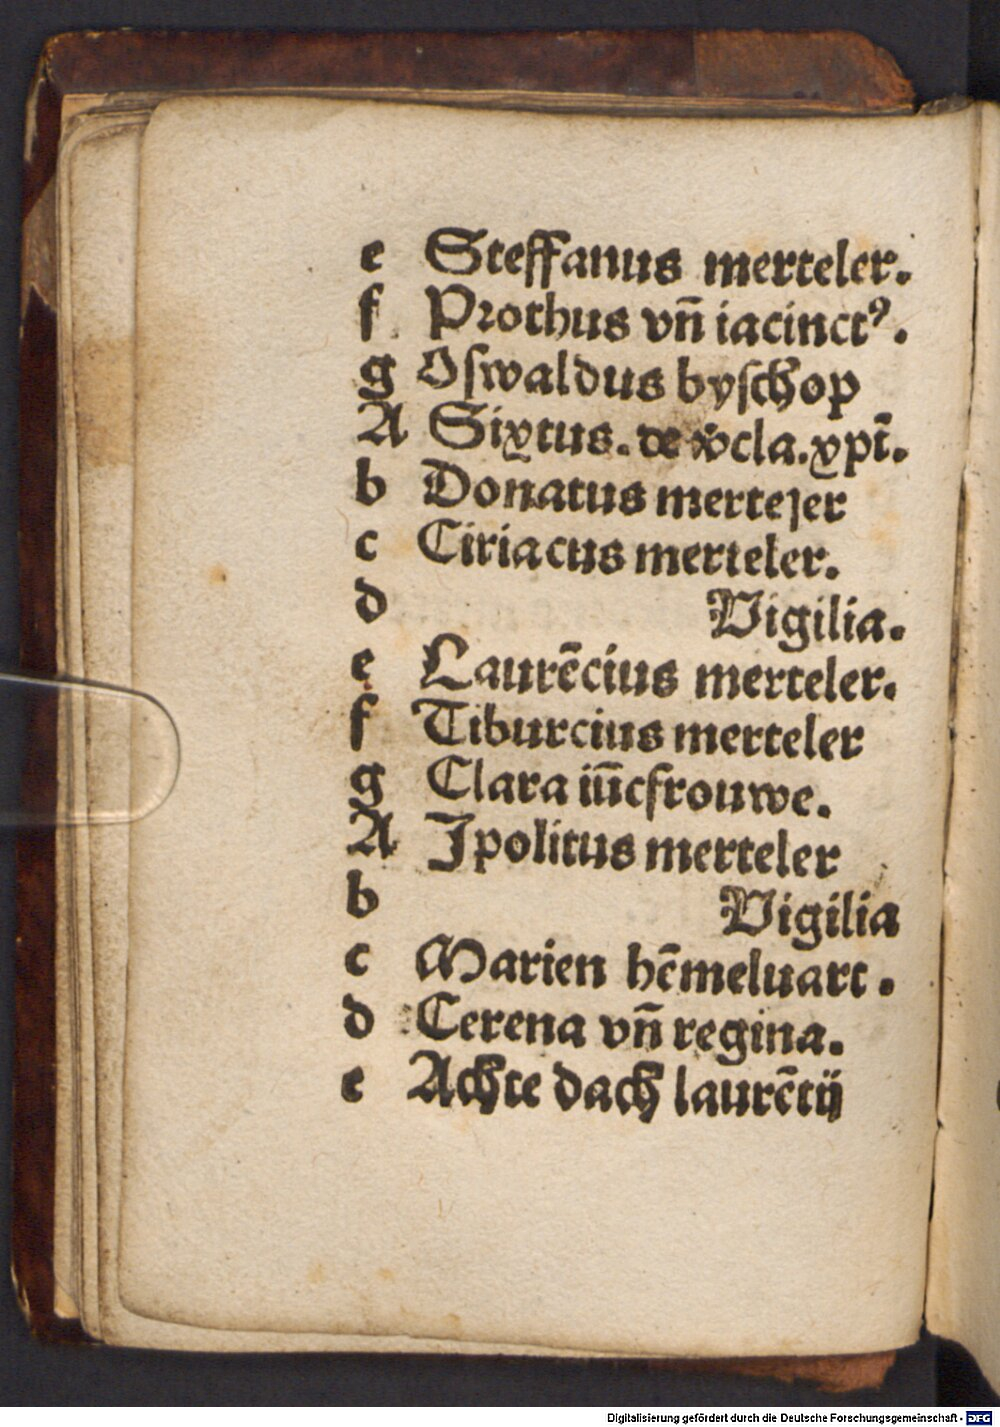 e Steffanus merteler.
f Prothus vn̄ iacinctꝰ.
g Oſwaldus byſchop
A Sixtus. de v̾cla. xpī.
b Donatus merteȷer
c Ciriacus merteler.
d Vigilia.
e Laurēcius merteler.
f Tiburcius merteler
g Clara iūcfrouwe.
A Ipolitus merteler
b Vigilia
c Marien hēmeluart.
d Cerena vn̄ regina.
e Achte dach laurētij
Digitalisierung gefördert durch die Deutsche Forschungsgemeinschaft - DFG